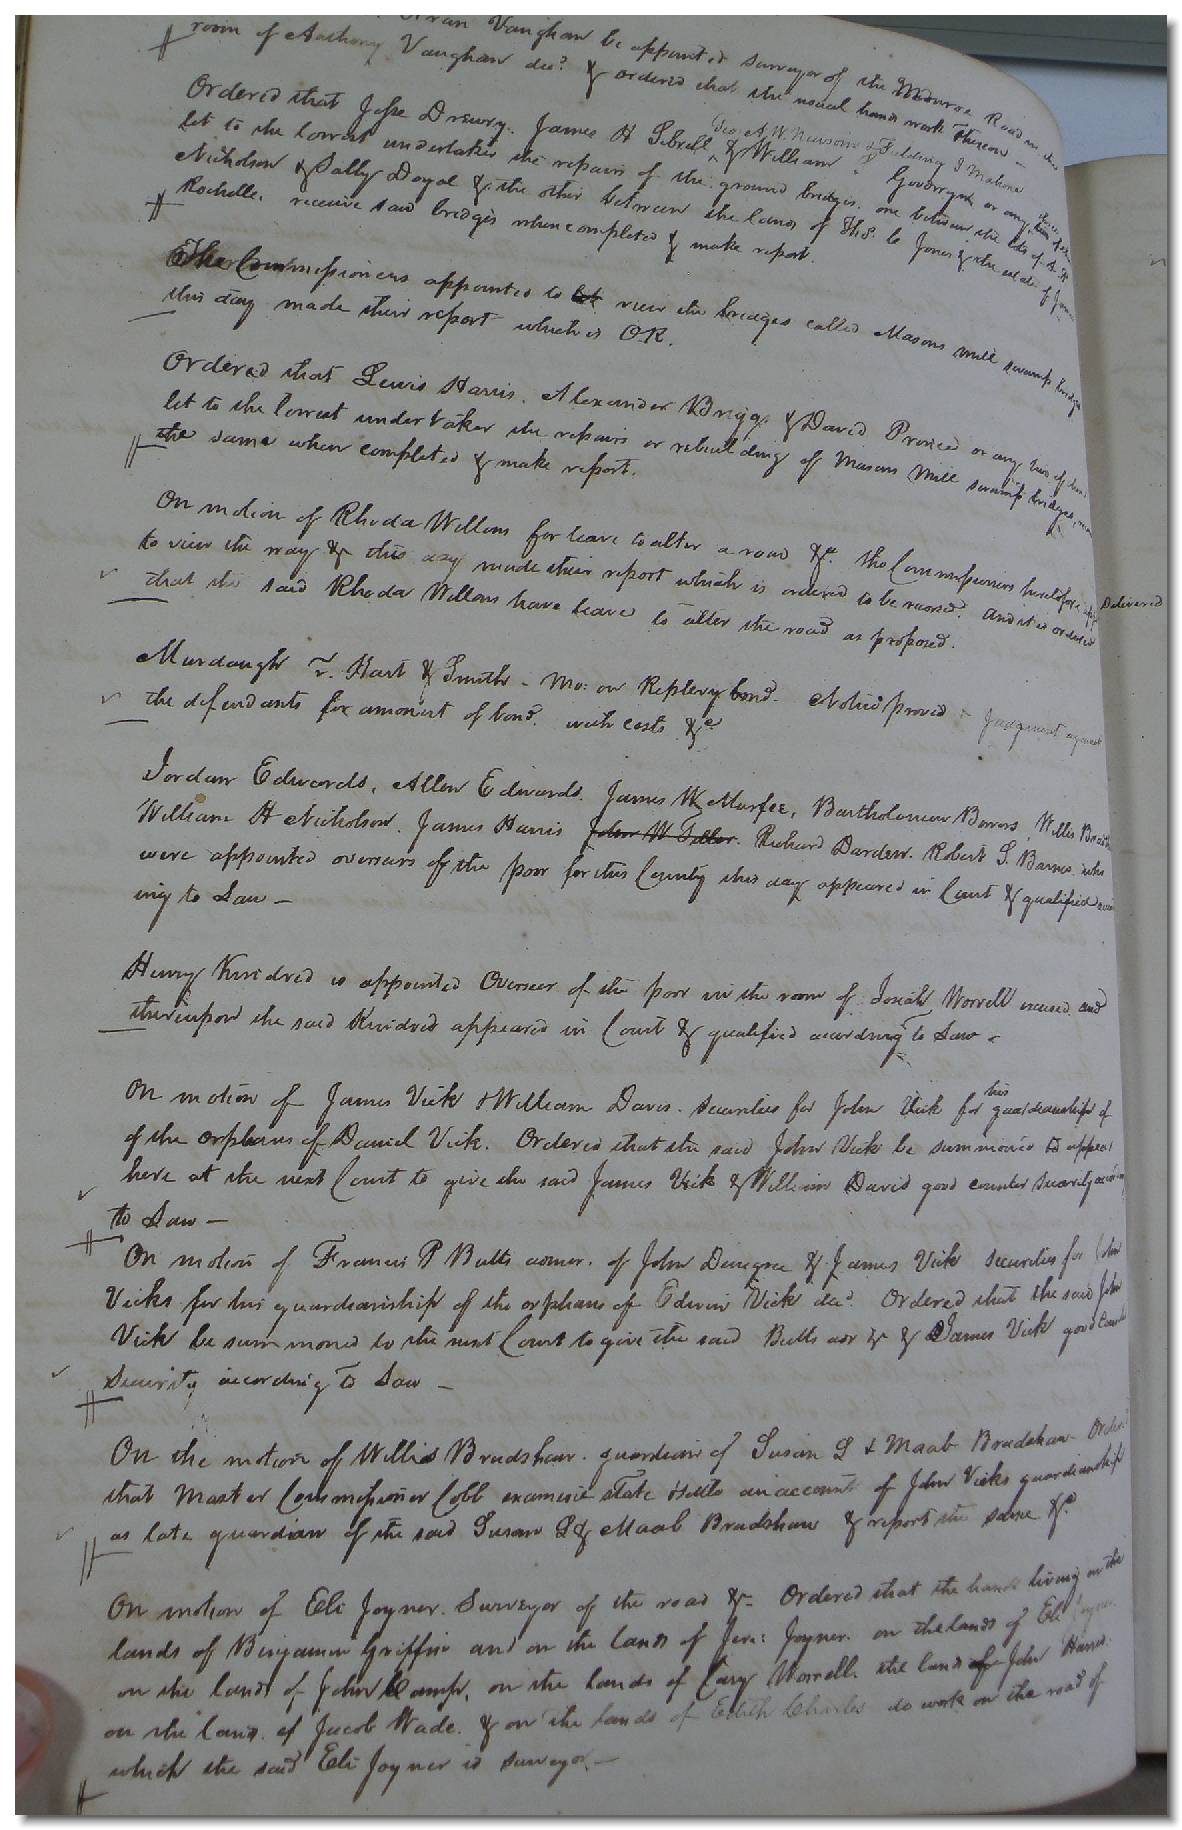 Vaughan be appointed surveyor of the Monroe Road in the
room of Anthony Vaughan decd. & ordered that the usual hands work thereon —
Geo. A. W. Newsom & Fielding J Mahone
Ordered that Jesse Drewry, James H Sebrell & William Goodwyn or any
let to the lowest undertaker the repairs of the ground bridges, one between the lds of
Nicholson & Sally Doyal & the other between the lands of Thos. Jones & the estate of James
Rochelle, receive said bridges when completed & make report.
The Commissioners appointed to let view the bridges called Masons mill swamp bridges
this day made their report which is OR.
Ordered that Lewis Harris, Alexander Briggs & David or any two of them
let to the lowest undertaker the repairs or rebuilding of Masons mill swamp bridges,
the same when completed & make report.
On motion of Rhoda Wellons for leave to alter a road &c. the Commissioners heretofore
to view the way & this day made their report which is ordered to be And it is ordered
that the said Rhoda Wellons have leave to alter the road as proposed.
Delivered
Murdaugh v. Hart & Smith - mo: on Replevy bond. Notice proved & Judgment against
the defendants for amount of bond with costs &c
Jordan Edwards, Allen Edwards, James W Murfee, Bartholomew Barrow, Willis
William H Nicholson, James Harris John W. Richard Darden, Robert S. Barnes who
were appointed overseers of the poor for this County this day appeared in Court & qualified
ing to Law —
Henry Kindred is appointed Overseer of the poor in the room of Josiah Worrell excused and
thereupon the said Kindred appeared in Court & qualified according to Law -
On motion of James Vick & William Davis, securities for John Vick for his guardianship of
of the orphans of Daniel Vick. Ordered that the said John Vick be summoned to appear
here at the next Court to give the said James Vick & William David good counter security
to Law —
On motion of Francis P Butts admr. of John & James Vick securities for John
Vicks for his guardianship of the orphans of Edwin Vick decd. Ordered that the said John
Vick be summoned to the next Court to give the said Butts adr & & James Vick good
Security according to Law —
On the motion of Willis Bradshaw guardian of Susan S & Maab Bradshaw
that Master Commissioner Cobb examine state & settle an account of John Vicks guardianship
as late guardian of the said Susan S & Maab Bradshaw & report the same &c.
On motion of Eli Joyner, Surveyor of the road &c Ordered that the hands living on the
lands of Benjamin Griffin and on the lands of Jere: Joyner, on the lands of Eli Joyner
on the lands of John Camp, on the lands of Cary Worrell, the lands of John Harris.
on the lands of Jacob Wade, & on the lands of Edith Charles do work on the road of
which the said Eli Joyner is surveyor —